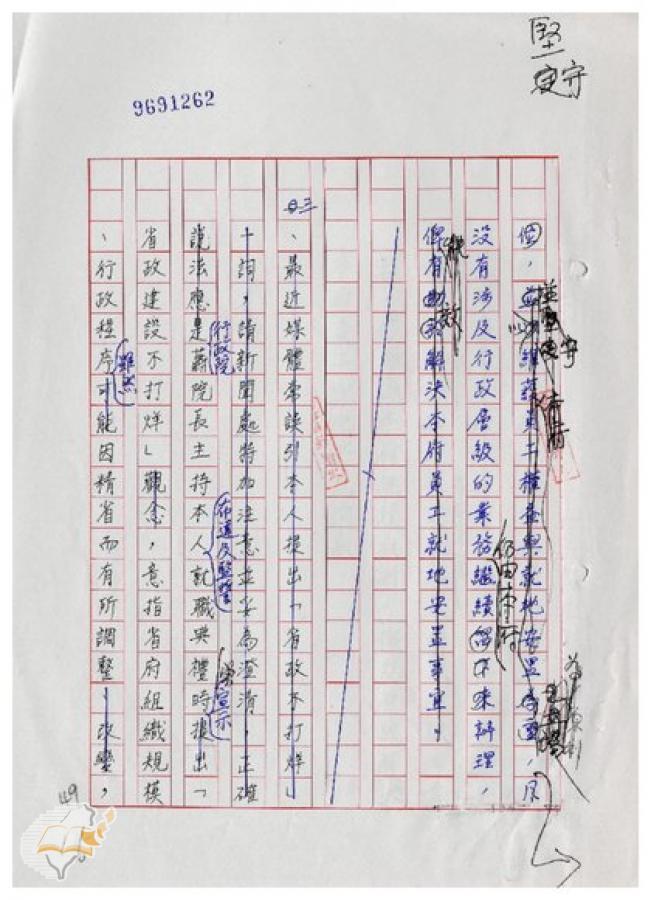 堅守
9691262
個，並以維護員工權益與就地安置為重，凡
謹堅守
沒有涉及行政層級的業務繼續留下來辦理，
仍由本府
俾有效解決本府員工就地安置事宜。
能
效
三、最近媒體常誤引本人提出「省政不打烊」
一詞，請新聞處特加注意並妥為澄清，正確
說法應是蕭院長主持本人就職典禮時提出「
行政院
布達及監誓
宣示
省政建設不打烊」觀念，意指省府組織規模
、行政程序可能因精省而有所調整、改變，
雖然
49